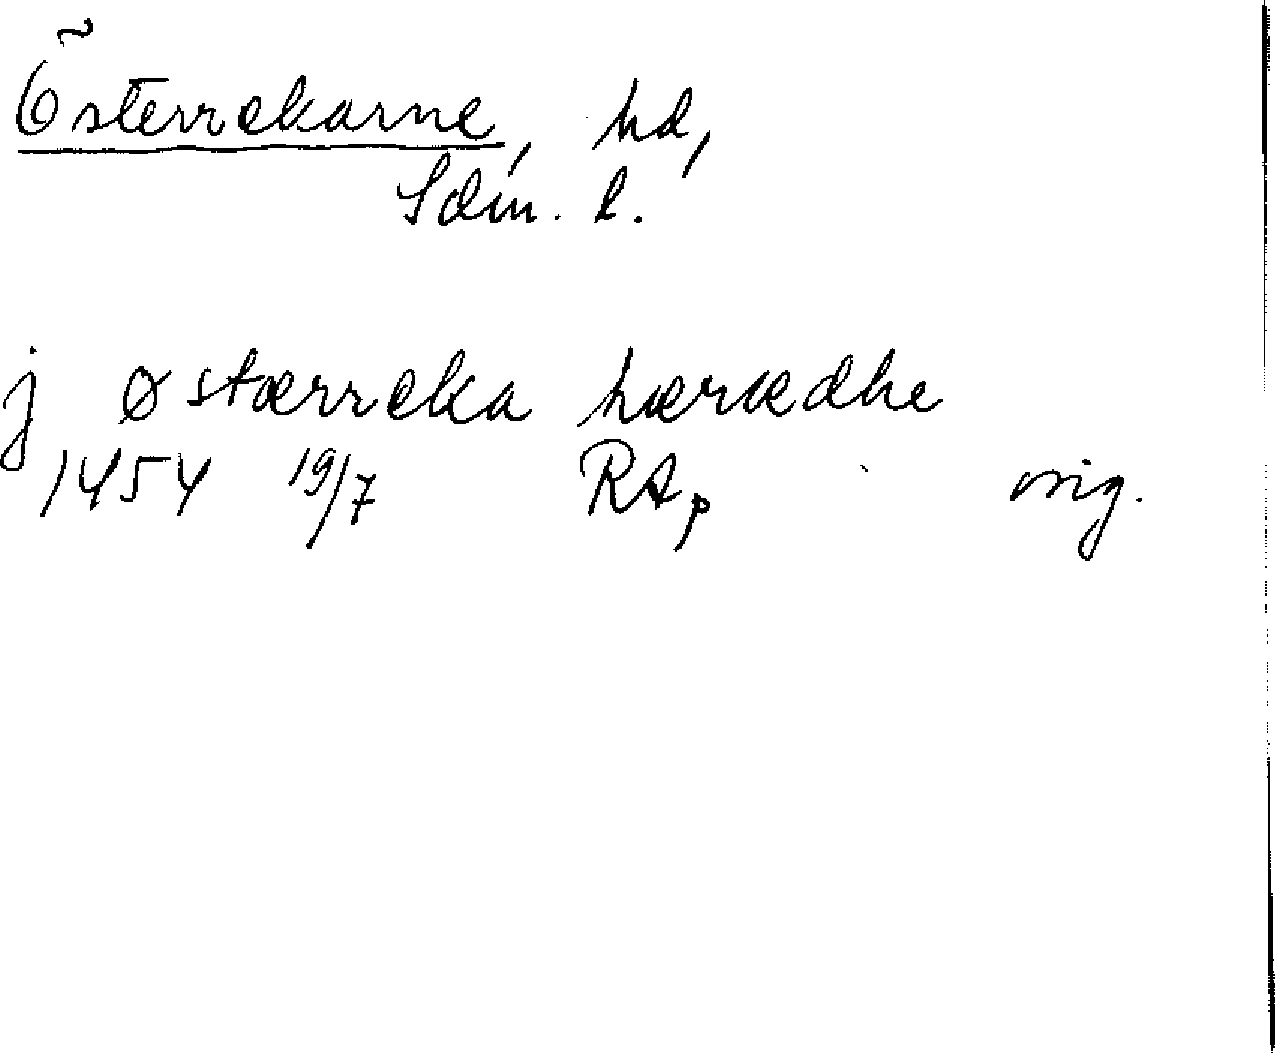 Österrekarne, hd,
Sdm. l.
j østærreka hæradhe
1454 19/7 RAp orig.